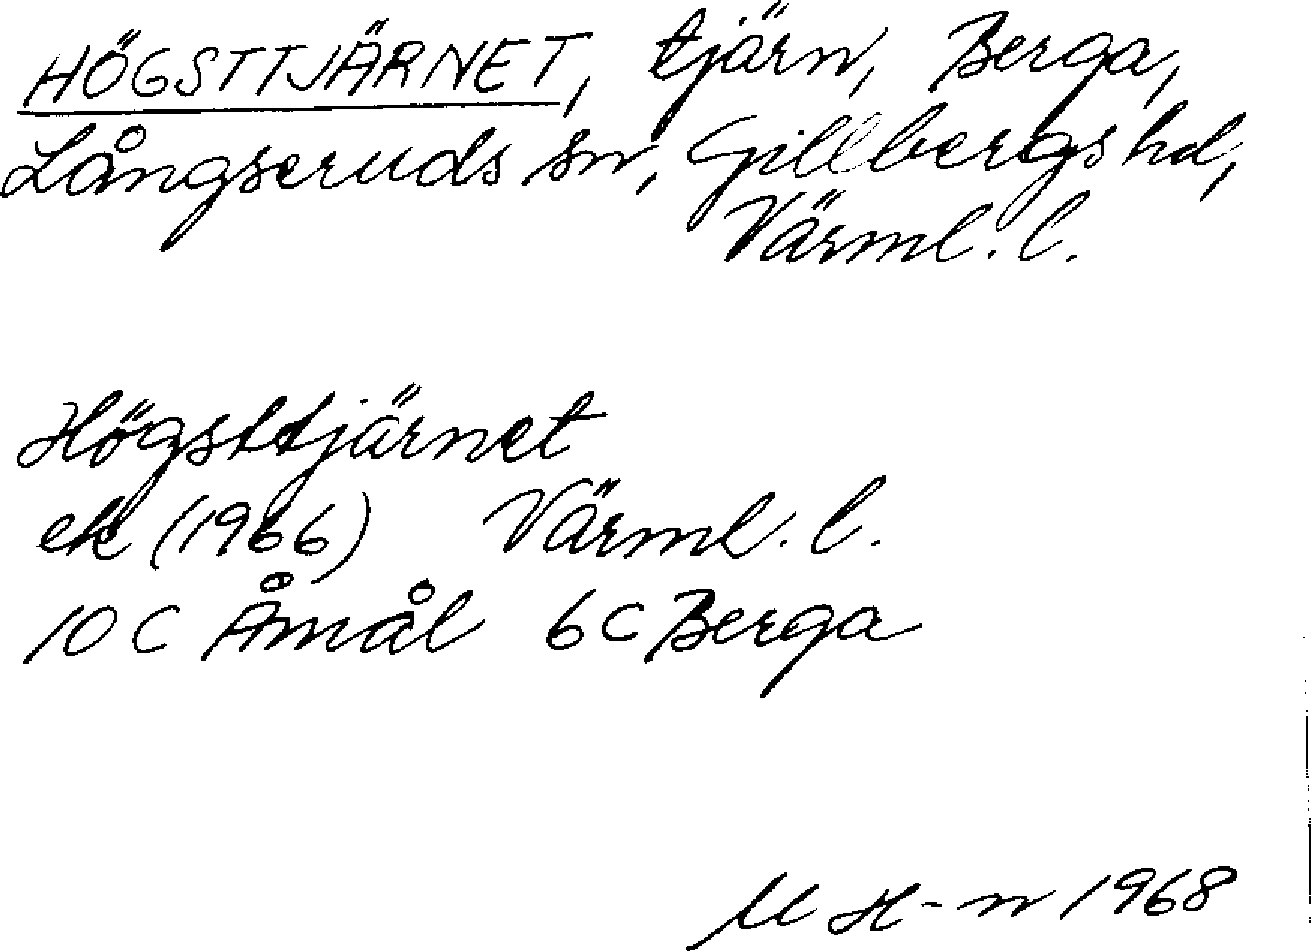 HÖGSTTJÄRNET, tjärn, Berga,
Långseruds sn, Gillbergs hd,
Värml. l.
Högsttjärnet
ek (1966) Värml. l.
10 C Åmål 6 C Berga
M H-n 1968